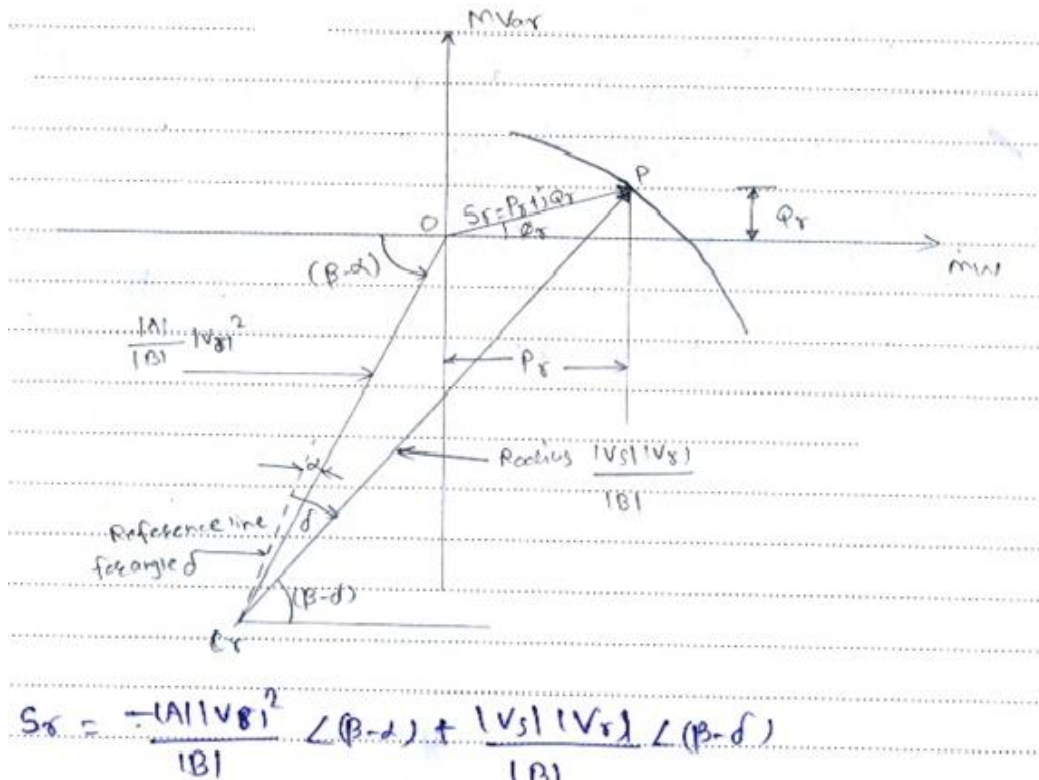 MVar
P
Sr = Pr + jQr
O
Qr
Φr
MW
(β-α)
|A| |Vr|²
|B|
Pr
Radius |Vs| |Vr|
|B|
α
Reference line
for angle δ
δ
(β-δ)
Cr
Sr = -|A| |Vr|² ∠(β-α) + |Vs| |Vr| ∠(β-δ)
|B| |B|